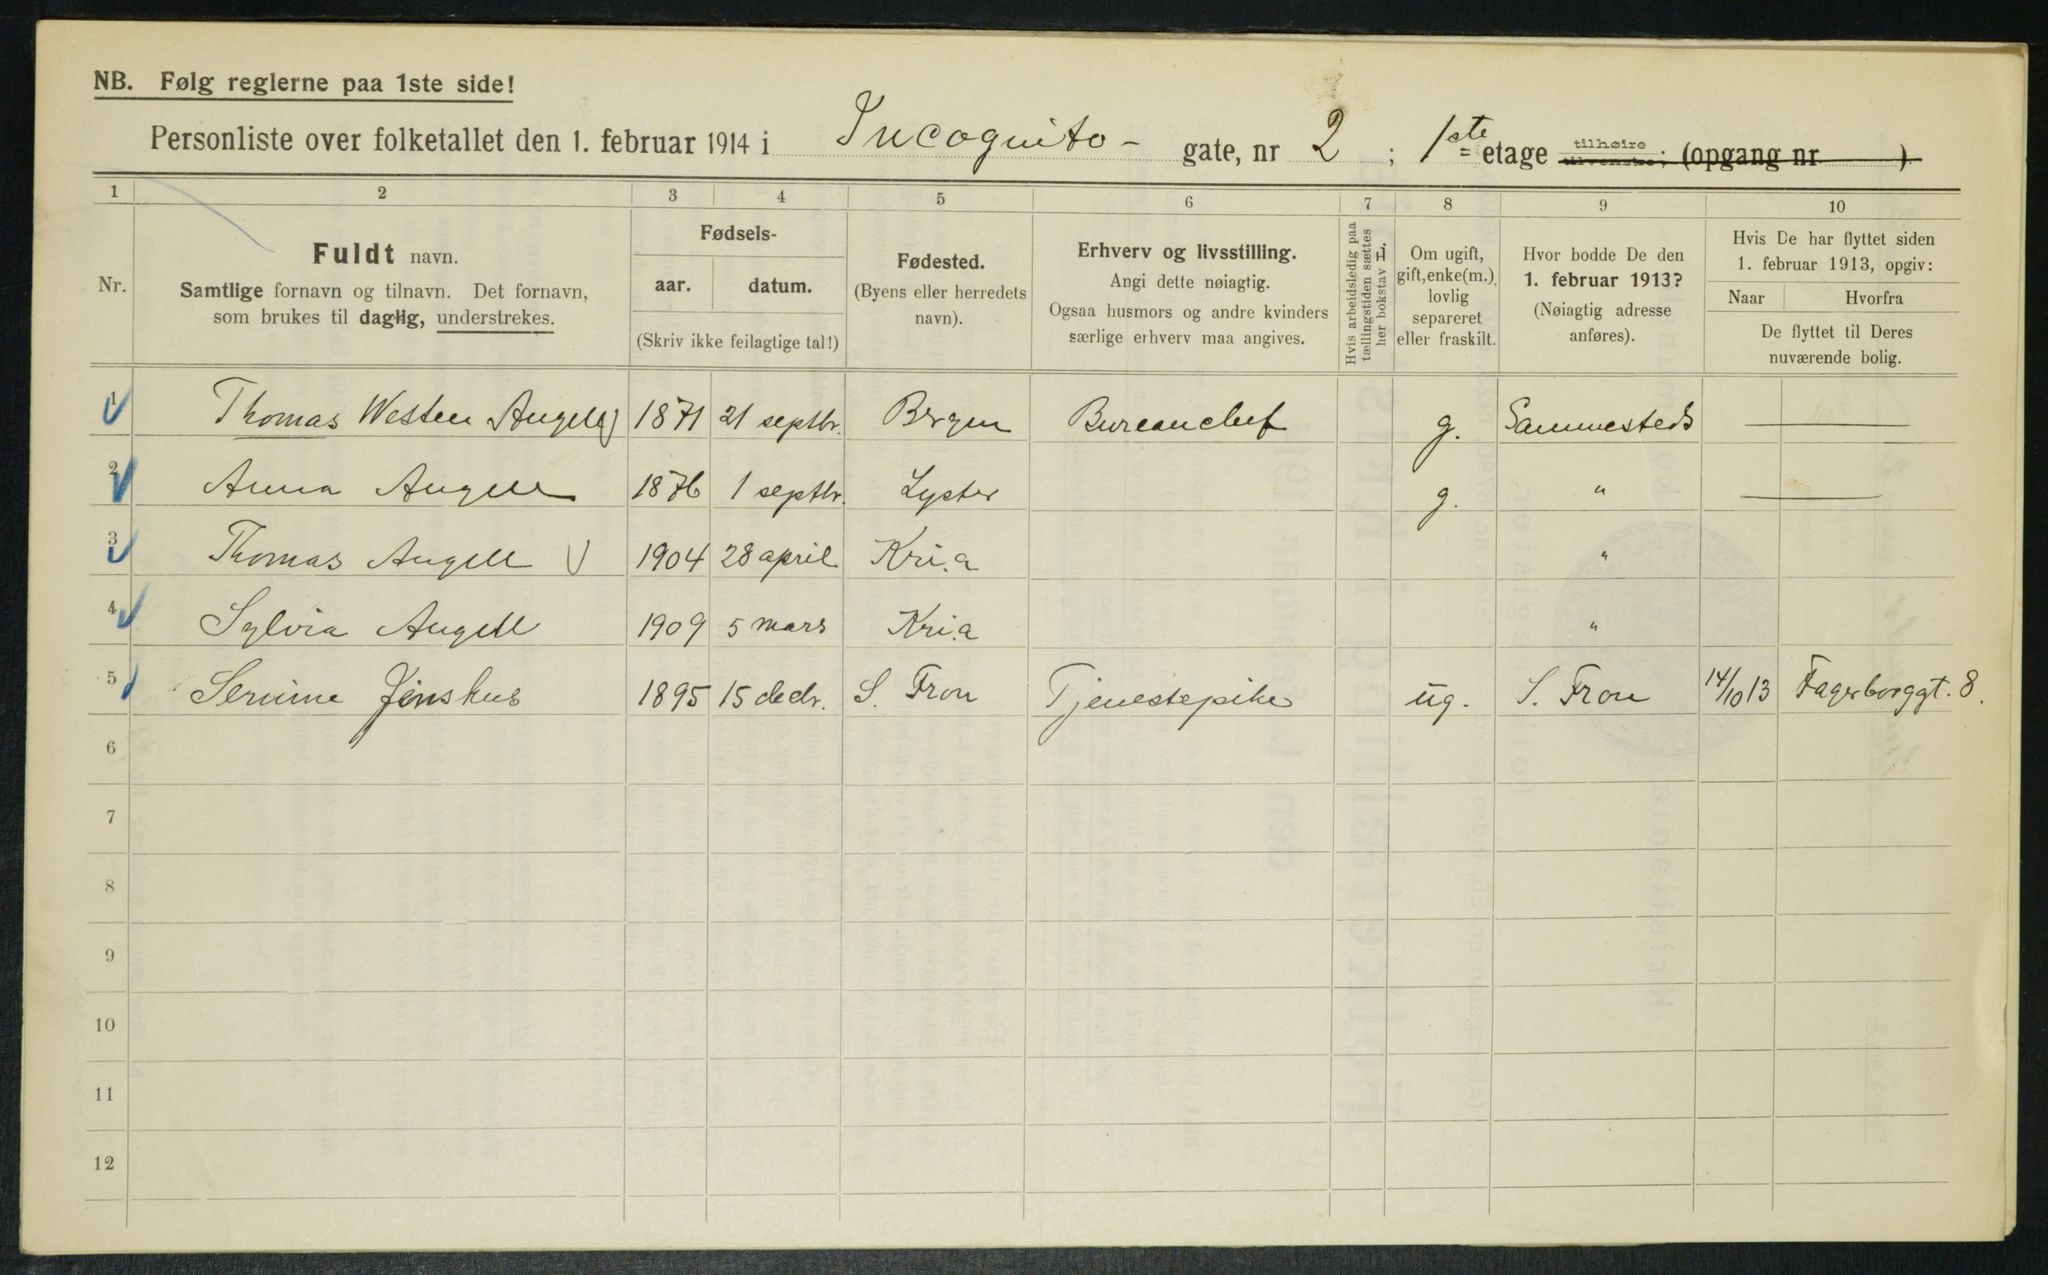 NB. Følg reglerne paa 1ste side!
Personliste over folketallet den 1. februar 1914 i Incognito- gate, nr 2 ; 1ste etage tilhøire tilvenstre; (opgang nr )
1 2 3 4 5 6 7 8 9 10
Nr.
Fuldt navn.
Samtlige fornavn og tilnavn. Det fornavn,
som brukes til daglig, understrekes.
Fødsels-
aar. datum.
(Skriv ikke feilagtige tal!)
Fødested.
(Byens eller herredets
navn).
Erhverv og livsstilling.
Angi dette nøiagtig.
Ogsaa husmors og andre kvinders
særlige erhverv maa angives.
Hvis arbeidsledig paa
tællingstiden sættes
her bokstav L.
Om ugift,
gift, enke(m.),
lovlig
separeret
eller fraskilt.
Hvor bodde De den
1. februar 1913?
(Nøiagtig adresse
anføres).
Hvis De har flyttet siden
1. februar 1913, opgiv:
Naar Hvorfra
De flyttet til Deres
nuværende bolig.
1 Thomas Westen Angell 1871 21 septbr. Bergen Bureauchef g. Sammesteds —
2 Anna Angell 1876 1 septbr. Lyster g. " —
3 Thomas Angell 1904 28 april Kri.a "
4 Sylvia Angell 1909 5 mars Kri.a "
5 Serine Jenshus 1895 15 decbr. S. Fron Tjenestepike ug. S. Fron 14/10 13 Fagerborggt. 8.
6
7
8
9
10
11
12